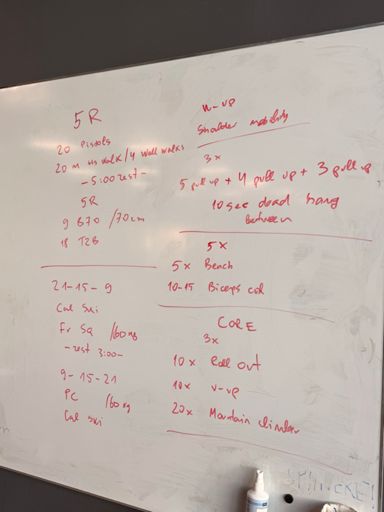 5R
20 Pistols
20 m HS walk/4 wall walks
-5:00 rest-
5R
9 BJO /70cm
18 T2B
21-15-9
Cal Ski
Fr Sq /60kg
-rest 3:00-
9-15-21
PC /60kg
Cal Ski
W-up
Shoulder mobility
3x
5 pull up + 4 pull up + 3 pull up
10 sec dead hang
between
5x
5x Bench
10-15 Biceps curl
CORE
3x
10x Roll out
10x V-up
20x Mountain climber